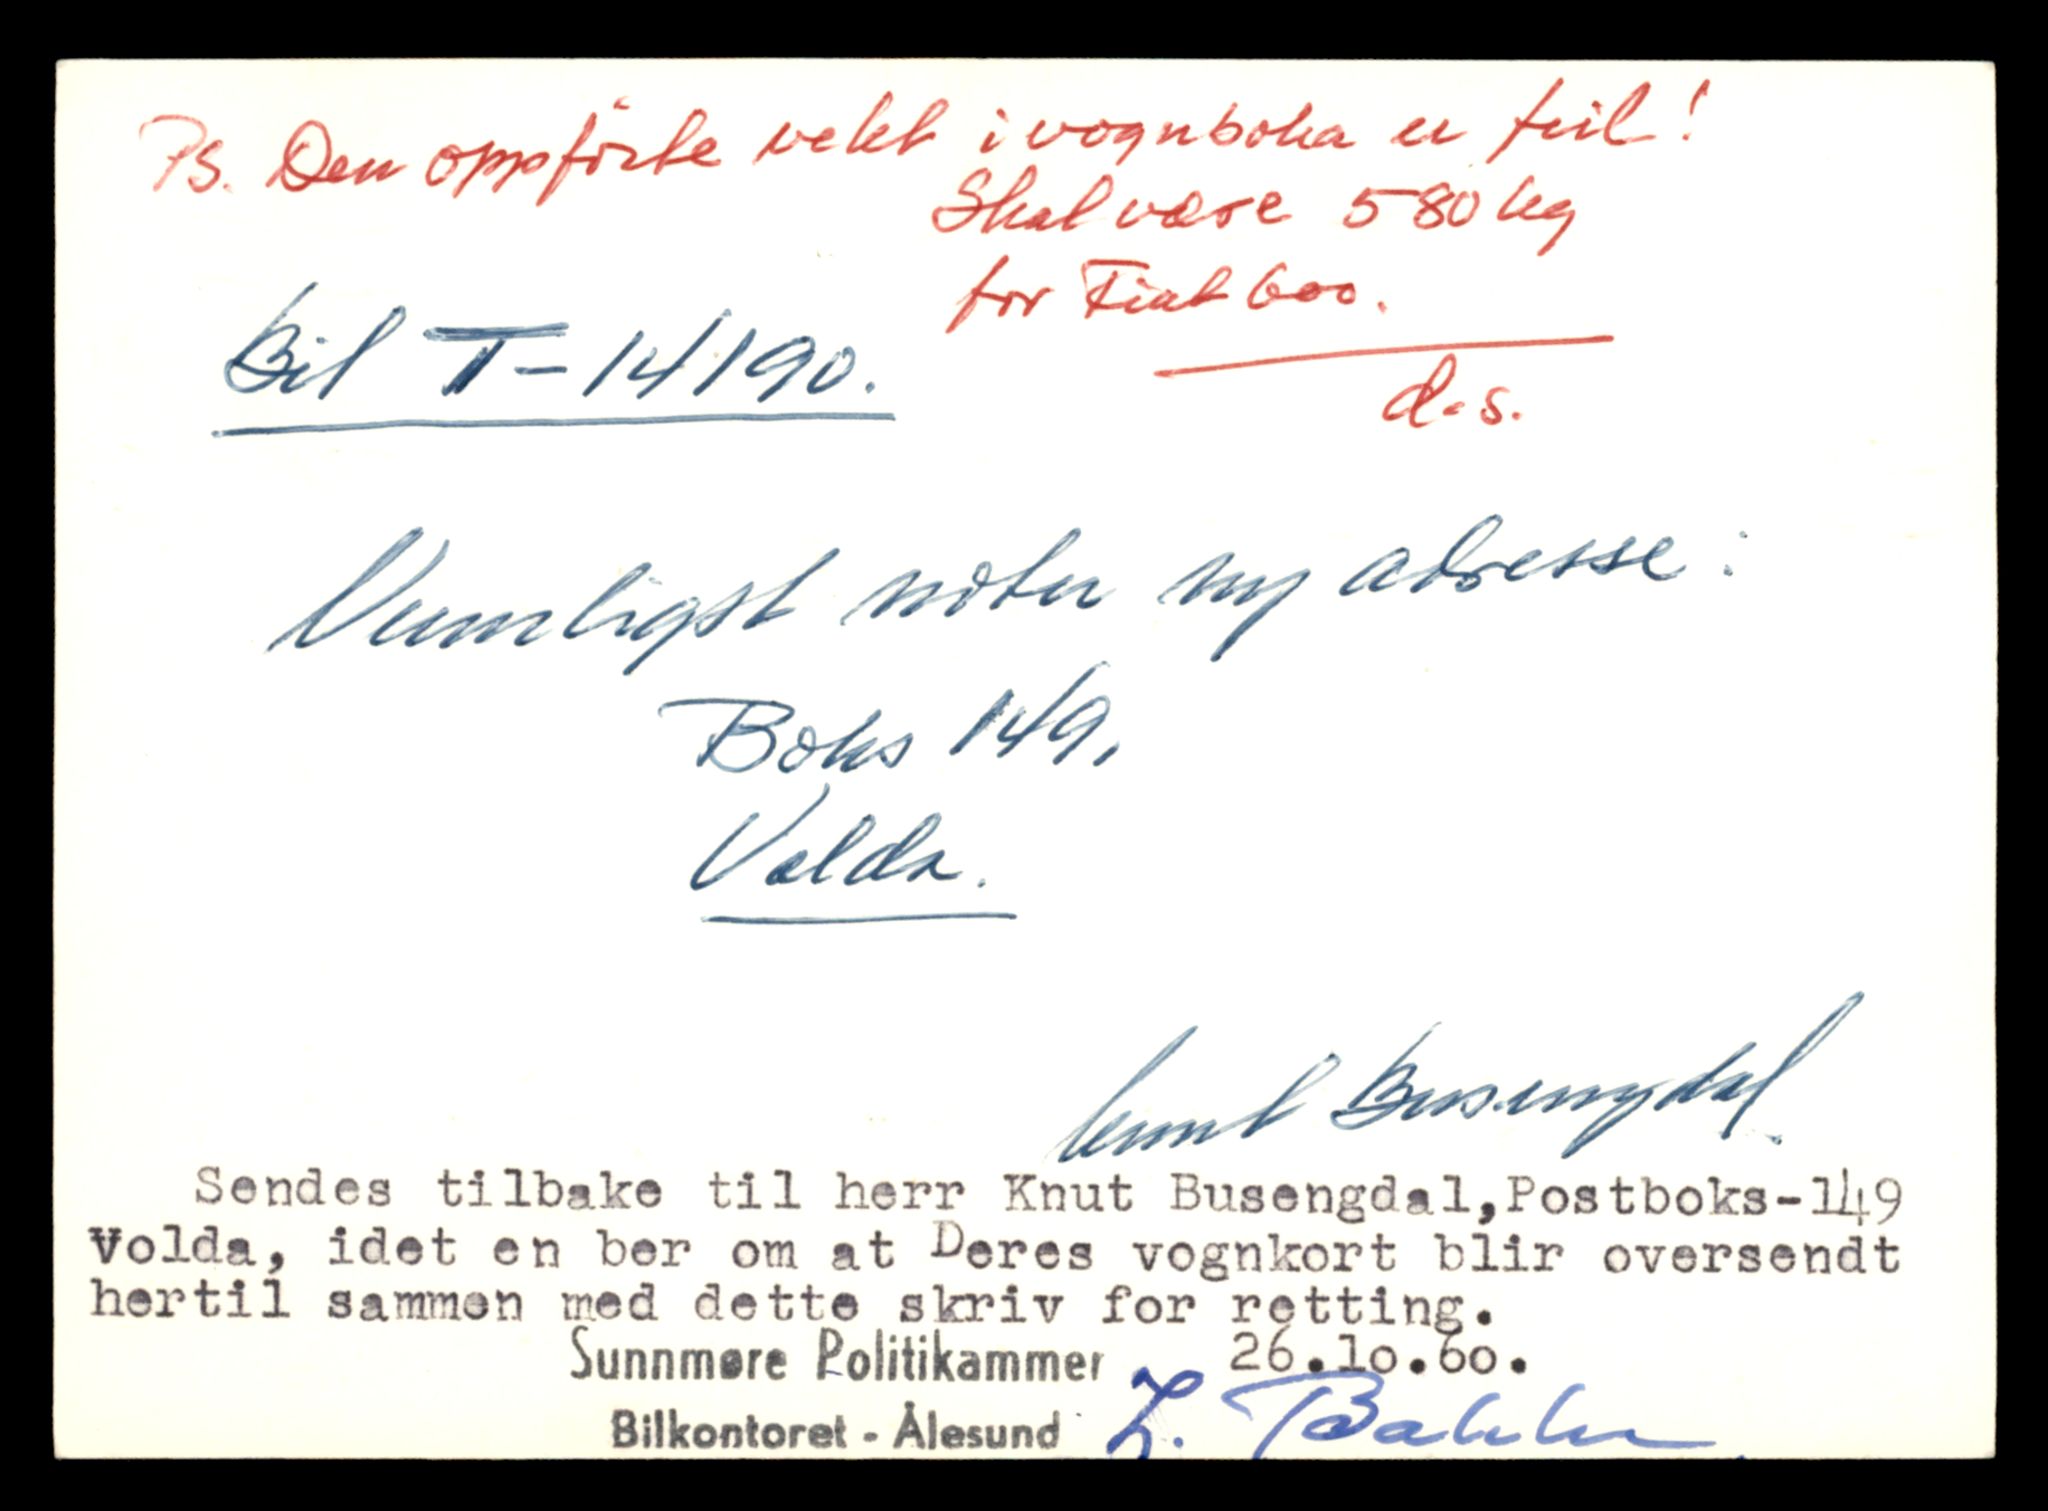 Ps. Den oppförte vekt i vognboka er feil!
Skal være 580 kg
for Fiat 600.
d.s.
Bil T-14190.
Vennligst noter ny adresse:
Boks 149,
Volda.
Knut Busengdal.
Sendes tilbake til herr Knut Busengdal,Postboks-149
Volda, idet en ber om at Deres vognkort blir oversendt
hertil sammen med dette skriv for retting.
Sunnmøre Politikammer 26.10.60.
Bilkontoret - Ålesund Z. Bakke